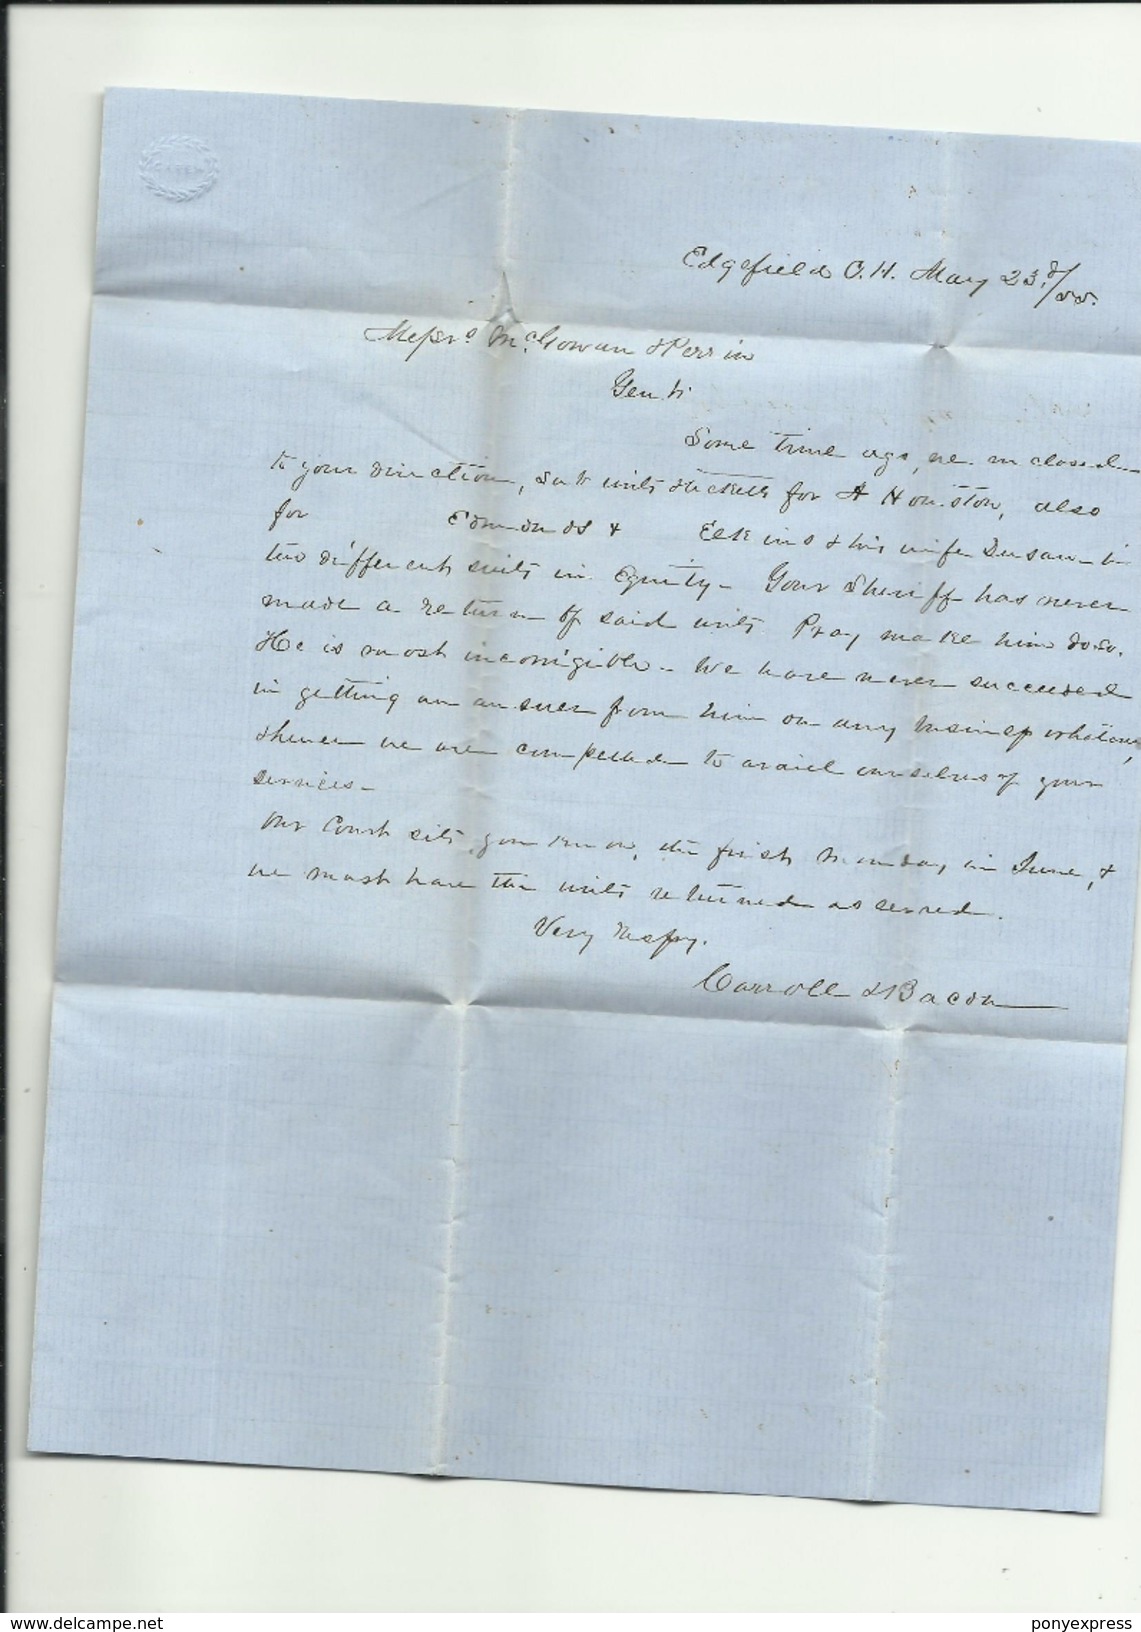 Edgefield C.H. May 23d/55.
Messrs McGowan & Perrin
Gents
Some time ago, we inclosed
to your direction, writs for A Houston, also
for Edmonds & Elkins & his wife Susan in
two different suits in Equity - Your Sheriff has never
made a return of said writs. Pray make him do so.
He is most incorrigible - We have never succeeded
in getting an answer from him on any business whatever,
& hence we are compelled to avail ourselves of your
services -
Our Court sits, you know, the first Monday in June, &
we must have the writs returned as served.
Very Respy.
Carroll & Bacon
www.delcampe.net
ponyexpress